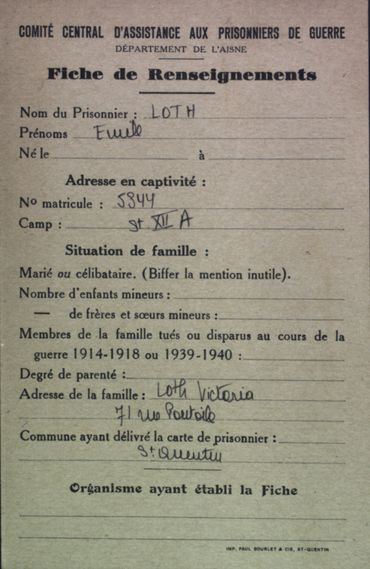 COMITÉ CENTRAL D'ASSISTANCE AUX PRISONNIERS DE GUERRE
DÉPARTEMENT DE L'AISNE
Fiche de Renseignements
Nom du Prisonnier : LOTH
Prénoms Emile
Né le à
Adresse en captivité :
No matricule : 5944
Camp : St XII A
Situation de famille :
Marié ou célibataire. (Biffer la mention inutile).
Nombre d'enfants mineurs :
— de frères et sœurs mineurs :
Membres de la famille tués ou disparus au cours de la
guerre 1914-1918 ou 1939-1940 :
Degré de parenté :
Adresse de la famille : Loth Victoria
71 rue
Commune ayant délivré la carte de prisonnier :
St Quentin
Organisme ayant établi la Fiche
IMP. PAUL BOURLET & CIE, ST-QUENTIN